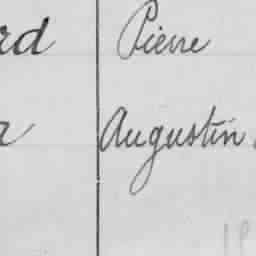 rd Pierre
r Augustin